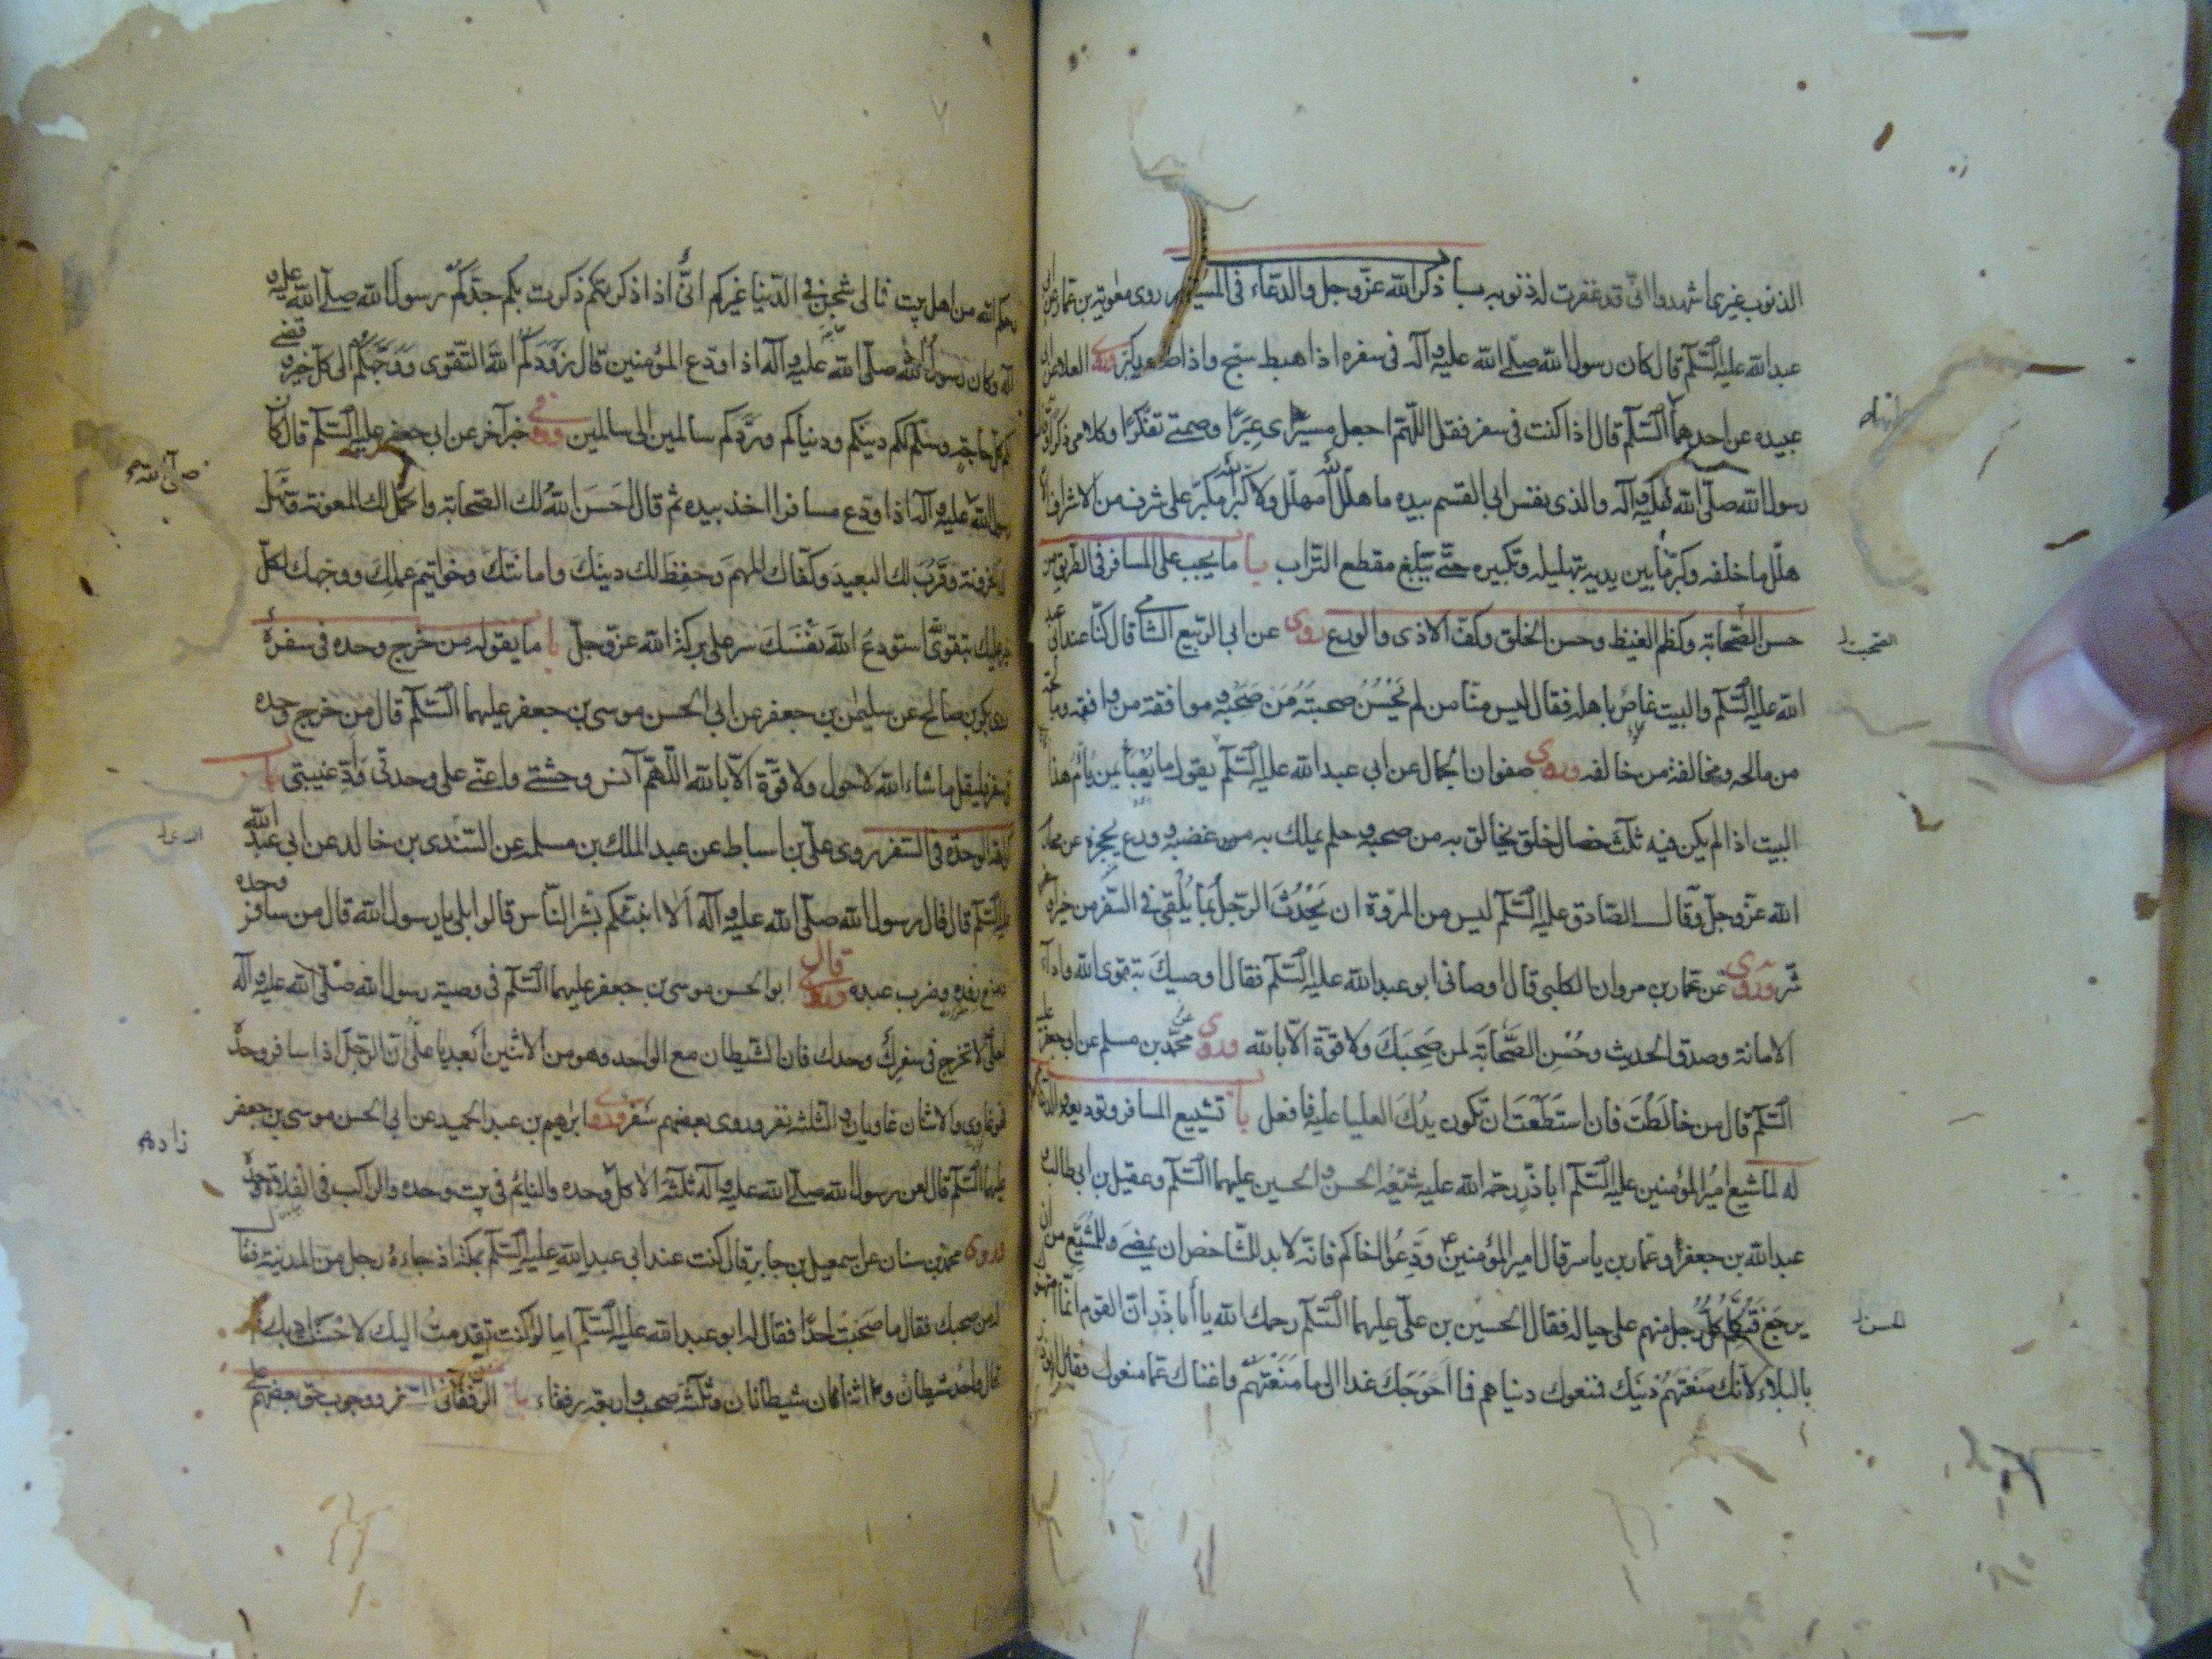 الذنوب غيرى اشهدوا انّى قد غفرت له ذنوبه باب ذكر الله عزّوجل والدّعاء فى المسير روى معوية بن عمار عن ابى
عبد الله عليه السّلم قال كان رسول الله صلّى الله عليه وآله فى سفره اذا هبط سبّح واذا صعد كبّر وروى العلا عن ابى
عبيده عن احدهما عليهما السّلم قال اذا كنت فى سفر فقل اللّهمّ اجعل مسيرى عِبَرًا وصمتى تفكّرًا وكلامى ذكرًا وقال
رسول الله صلّى الله عليه وآله والذى نفس ابى القسم بيده ما هلّل لله مهلّل ولا كبّر لله مكبّر على شرف من الاشراف الّا
هلّل ما خلفه وكبّر ما بين يديه بتهليله وتكبيره حتّى يبلغ مقطع التّراب باب ما يجب على المسافر فى الطّريق من
حسن الصّحابة وكظم الغيظ وحسن الخلق وكفّ الاذى والورع روى عن ابى الرّبيع الشّامى قال كنّا عند ابى عبد
الله عليه السّلم والبيت غاصّ باهله فقال ليس منّا من لم يُحْسِن صحبة مَن صَحِبَه وموافقة من وافقه وممالحة
من مالحه ومخالفة من خالفه وروى صفوان الجمال عن ابى عبد الله عليه السّلم يقول ما يُعْبَأ بمن يؤمّ هذا
البيت اذا لم يكن فيه ثلث خصال خلق يخالق به من صحبه وحلم يملك به من غضبه وورع يحجزه عن محارم
الله عزّوجلّ وقال الصّادق عليه السّلم ليس من المروّة ان يُحْدِثَ الرّجل بما يُلْقى فى السّفر من خير او
شرّ وروى عن عمار بن مروان الكلبى قال اوصانى ابو عبد الله عليه السّلم فقال اوصيك بتقوى الله واداء
الامانة وصدق الحديث وحُسْنِ الصَّحابَة لمن صَحِبَكَ ولا قوّة الّا بالله وروى عن محمّد بن مسلم عن ابى جعفر عليه
السّلم قال من خالَطْتَ فان استَطَعْتَ ان تكون يدُكَ العليا عليه فافعل باب تشييع المسافر وتوديعه والدّعاء
له لما شيع امير المؤمنين عليه السّلم اباذرّ رحمة الله عليه شيّعه الحسن والحسين عليهما السّلم وعقيل بن ابى طالب و
عبد الله بن جعفر وعمار بن ياسر قال امير المؤمنين ع وَدِّعُوا اخاكم فانّه لا بد للشّاخص ان يمضى وللمشيّع من ان
يرجع فتكلّم كلّ رجل منهم على حياله فقال الحسين بن علىّ عليهما السّلم رحمك الله يا اباذّر انّ القوم انّما امتهنوك
بالبلاء لانّك منعتهم دينك فمنعوك دنياهم فما احوجك غدا الى ما منعتهم واغناك عمّا منعوك فقال ابوذر
رحمكم الله من اهل بيت فما لى شجن فى الدّنيا غيركم انّى اذا ذكرتكم ذكرت بكم جدّكم رسول الله صلّى الله عليه و
آله وكان رسول الله صلّى الله عليه وآله اذا ودّع المؤمنين قال زوّدكم الله التّقوى ووجّهكم الى كلّ خير وقضى
لكم كلّ حاجة وسلّم لكم دينكم ودنياكم وردّكم سالمين الى سالمين وفى خبر آخر عن ابى جعفر عليه السّلم قال كان
رسول الله عليه وآله اذا ودّع مسافرا اخذ بيده ثم قال احسن الله لك الصّحابة واكمل لك المعونة وسهّل
لك الحزونة وقرّب لك البعيد وكفاك المهمّ وحفظ لك دينك وامانتك وخواتيم عملك ووجّهك لكلّ
خير عليك بتقوى الله استودع الله نفسك سر على بركة الله عزّوجلّ باب ما يقوله من خرج وحده فى سفره
روى بكر بن صالح عن سليمن بن جعفر عن ابى الحسن موسى بن جعفر عليهما السّلم قال من خرج وحده
فى سفر فليقل ما شاء الله لا حول ولا قوّة الّا بالله اللّهمّ آنس وحشتى واعنّى على وحدتى وادّ غيبتى باب
كراهة الوحدة فى السّفر روى علىّ بن اسباط عن عبد الملك بن مسلمة عن السّندى بن خالد عن ابى عبد الله
عليه السّلم قال قال رسول الله صلّى الله عليه وآله الا انبئكم بشرّ النّاس قالوا بلى يا رسول الله قال من سافر وحده
ومنع رفده وضرب عبده وقال ابو الحسن موسى بن جعفر عليهما السّلم فى وصية رسول الله صلّى الله عليه وآله
لعلىّ لا تخرج فى سفرك وحدك فان الشّيطان مع الواحد وهو من الاثنين ابعد يا علىّ انّ الرّجل اذا سافر وحده
فهو غاوٍ والاثنان غاويان والثّلثة نفر وروى بعضهم سفر وروى ابرهيم بن عبد الحميد عن ابى الحسن موسى بن جعفر
عليهما السّلم قال لعن رسول الله صلّى الله عليه وآله ثلثة الآكل وحده والنائم فى بيت وحده والراكب فى الفلاة وحده
وروى محمّد بن سنان عن اسمعيل بن جابر قال كنت عند ابى عبد الله عليه السّلم بمكّة اذ جاءه رجل من المدينة فقال
له من صحبك فقال ما صحبت احدًا فقال له ابو عبد الله عليه السّلم اما لو كنت تقدمت اليك لاحسنت ادبك ثم
قال واحد شيطان واثنان شيطانان وثلثة صحب واربعة رفقاء باب الرّفقاء فى السّفر ووجوب حقّ بعضهم على